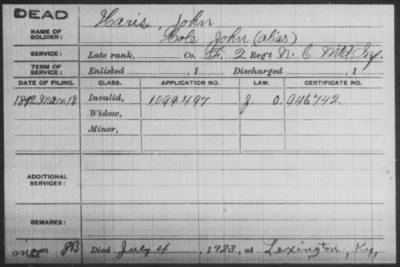 DEAD
NAME OF SOLDIER: Haris, John
Cole John (alias)
SERVICE: Late rank, Co. H, 2 Reg't N. C. Mtd Inf.
TERM OF SERVICE: Enlisted , 1 Discharged , 1
DATE OF FILING. CLASS. APPLICATION NO. LAW. CERTIFICATE NO.
1892 Mar 18 Invalid, 1099497 J O. 946742
Widow,
Minor,
ADDITIONAL SERVICES:
REMARKS:
Died July 4, 1923, at Lexington, Ky.